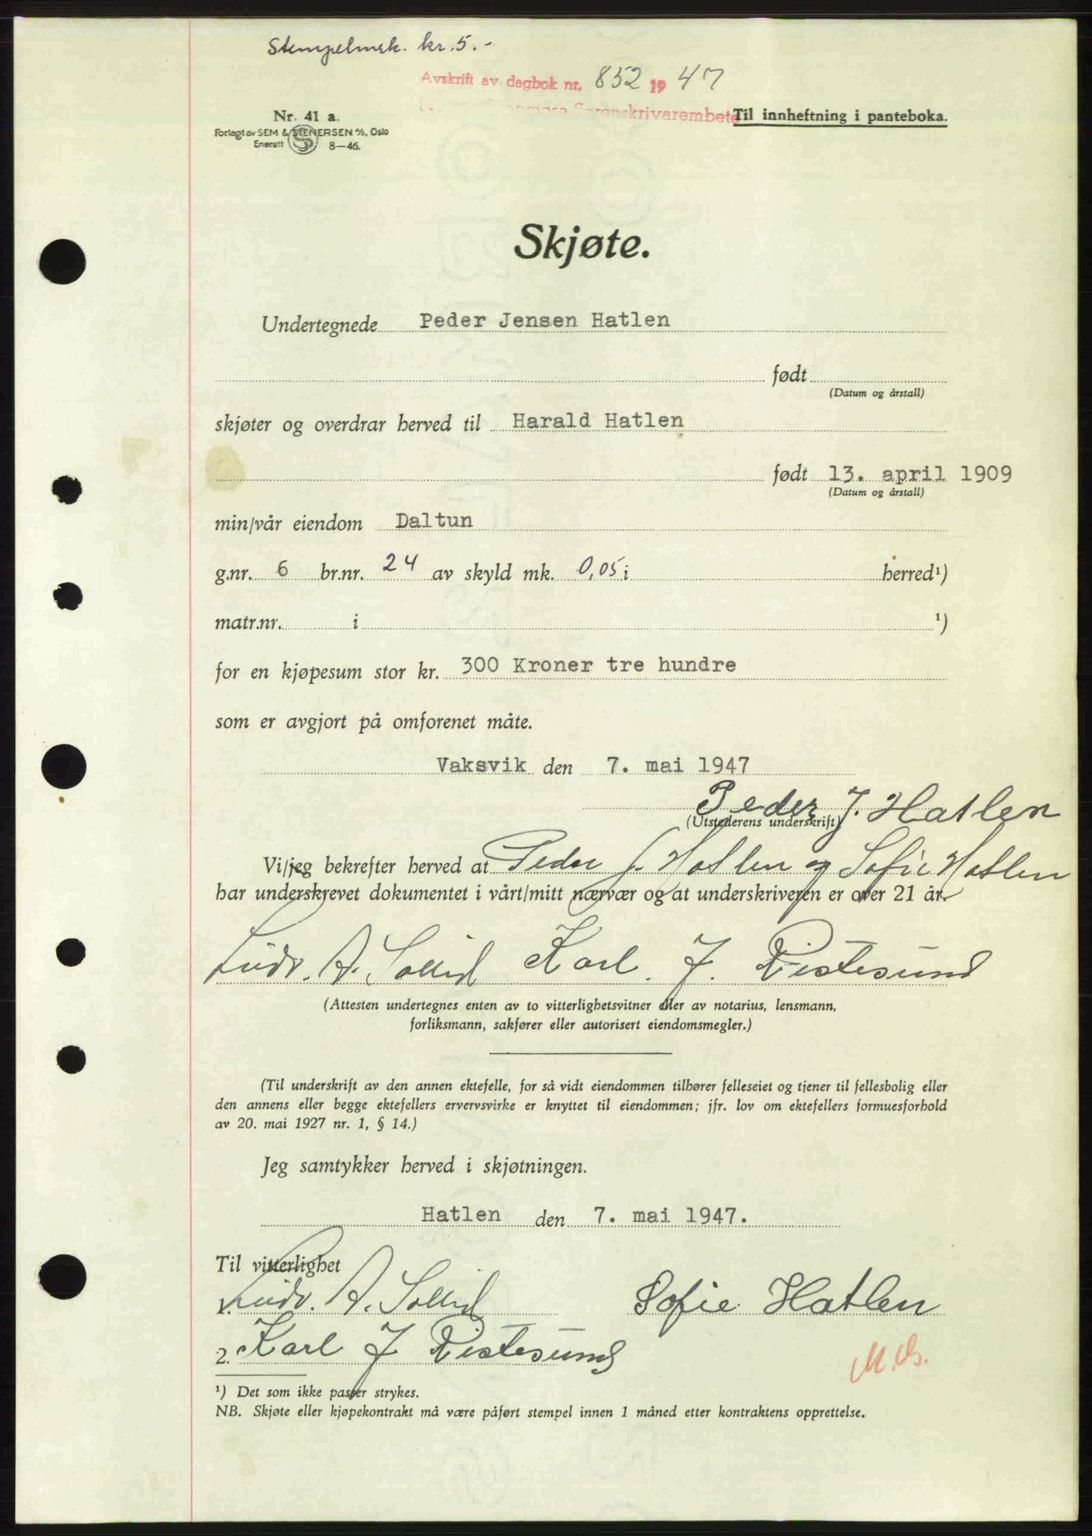 Stempelmek. kr. 5.-
Avskrift av dagbok nr. 852 1947
Sorenskriverembete
Til innheftning i panteboka.
Nr. 41 a.
Forlagt av SEM & STENERSEN A/S, Oslo
Enerett 8—46.
Skjøte.
Undertegnede Peder Jensen Hatlen
født
(Datum og årstall)
skjøter og overdrar herved til Harald Hatlen
født 13. april 1909
(Datum og årstall)
min/vår eiendom Daltun
g.nr. 6 br.nr. 24 av skyld mk. 0,05 i herred¹)
matr.nr. i ¹)
for en kjøpesum stor kr. 300 Kroner tre hundre
som er avgjort på omforenet måte.
Vaksvik den 7. mai 1947
Peder J. Hatlen
(Utstederens underskrift)
Vi/jeg bekrefter herved at Peder J. Hatlen og Sofie Hatlen
har underskrevet dokumentet i vårt/mitt nærvær og at underskriveren er over 21 år.
Ludv. A. Sollid Karl J. Ristesund
(Attesten undertegnes enten av to vitterlighetsvitner eller av notarius, lensmann,
forliksmann, sakfører eller autorisert eiendomsmegler.)
(Til underskrift av den annen ektefelle, for så vidt eiendommen tilhører felleseiet og tjener til fellesbolig eller
den annens eller begge ektefellers ervervsvirke er knyttet til eiendommen; jfr. lov om ektefellers formuesforhold
av 20. mai 1927 nr. 1, § 14.)
Jeg samtykker herved i skjøtningen.
Hatlen den 7. mai 1947.
Til vitterlighet
1. Ludv. A. Sollid Sofie Hatlen
2. Karl J Ristesund
M.B.
¹) Det som ikke passer strykes.
NB. Skjøte eller kjøpekontrakt må være påført stempel innen 1 måned etter kontraktens opprettelse.